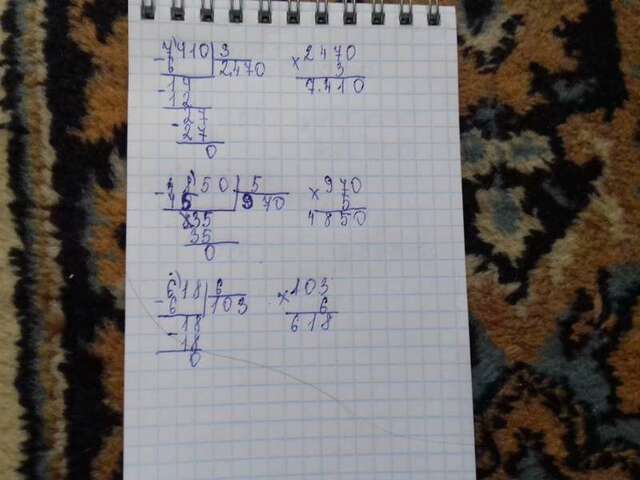 7910 3 × 2470
- 6 2470 3
- 19 7.410
12
- 27
27
0
- 4850 5 × 970
45 970 5
35 4850
35
0
618 6 × 103
- 6 103 6
- 18 618
18
0